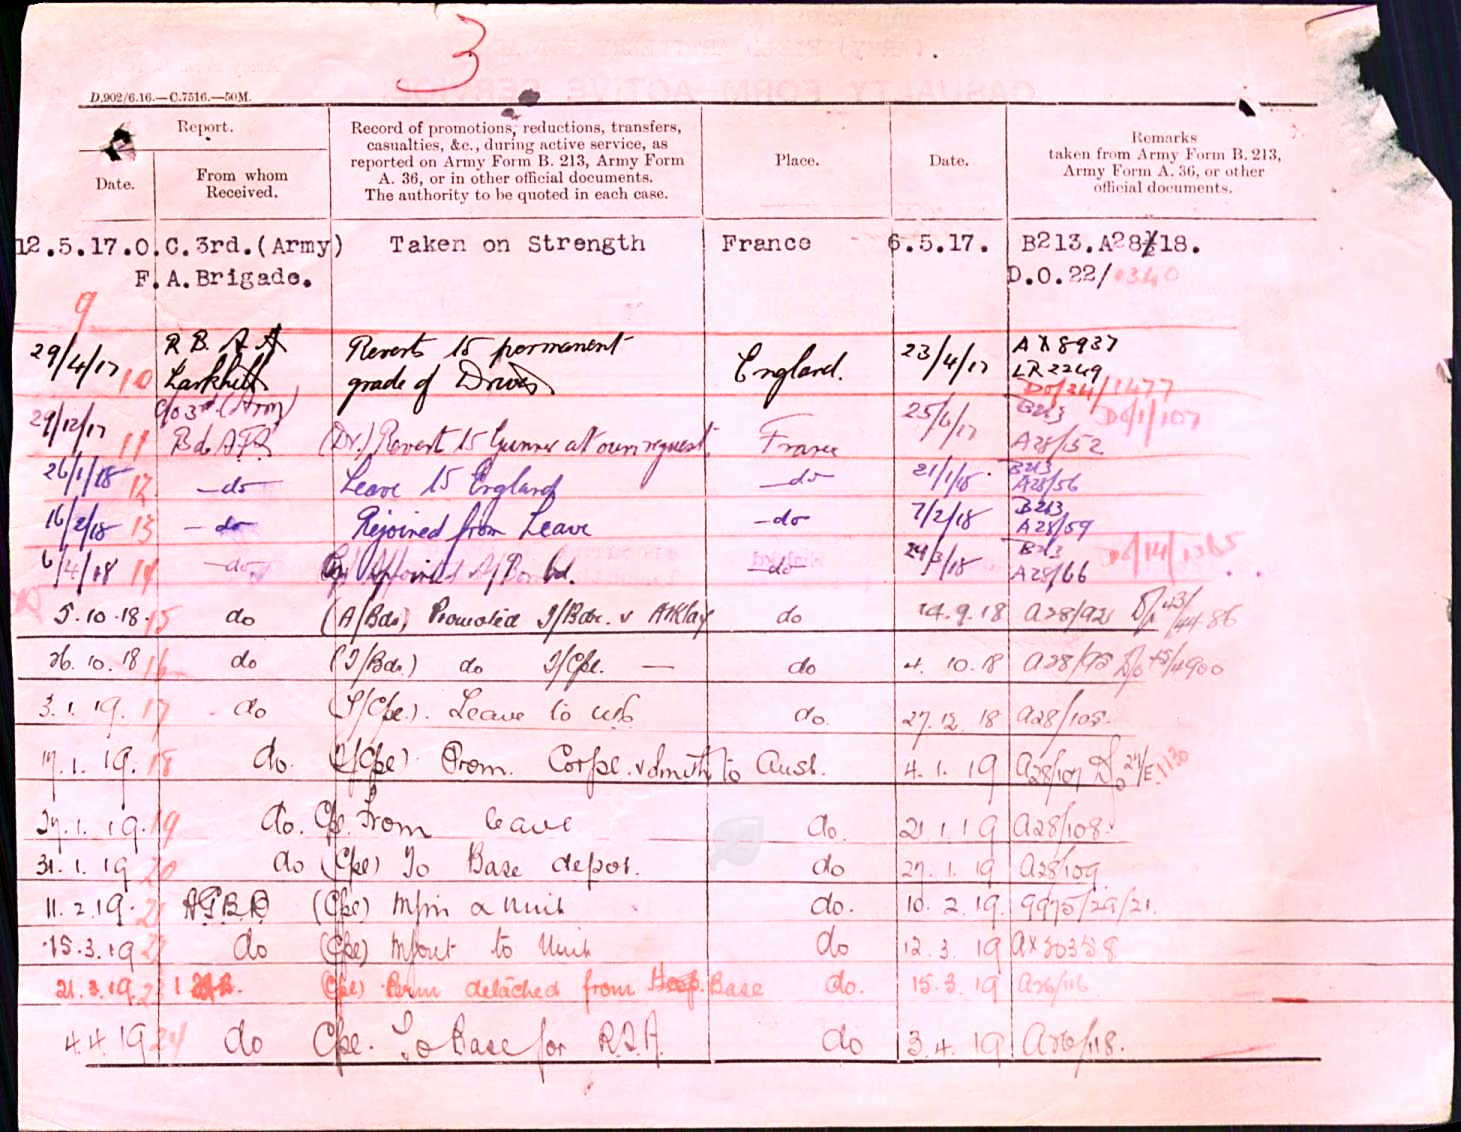 3
D.902/6.16.—C.7516.—50M.
Report.
Date.
From whom
Received.
Record of promotions, reductions, transfers,
casualties, &c., during active service, as
reported on Army Form B. 213, Army Form
A. 36, or in other official documents.
The authority to be quoted in each case.
Place.
Date.
Remarks
taken from Army Form B. 213,
Army Form A. 36, or other
official documents.
12.5.17. O.C. 3rd.(Army) Taken on Strength France 6.5.17. B213.A28/18.
F.A.Brigade. D.O.22/1340
9
29/4/17 R B. A A Reverts to permanent England. 23/4/17 AX8937
10 Larkhill grade of Driver LR2249
DO/24/1477
29/12/17 o/o 3rd (Army) 25/6/17 B213 DO/1/107
11 Bde AFA (Dr.) Revert to Gunner at own request. France A28/52
26/1/18 12 —do— Leave to England —do— 21/1/18 B213
A28/56
16/2/18 13 —do— Rejoined from Leave —do— 7/2/18 B213
A28/59
6/4/18 14 —do— Appointed A/Bombd. —do— 24/3/18 B213 DO/14/1365
A28/66
5.10.18. 15 do (A/Bdr) Promoted T/Bdr. v do 14.9.18 A28/92 Do 43/4486
26.10.18 16 do (T/Bdr.) do T/Cpl. — do 4.10.18 A28/95 Do 45/4900
3.1.19. 17 do (T/Cpl.). Leave to UK do. 27.12.18 A28/105.
17.1.19. 18 do. (T/Cpl) Prom. Corpl. v Smith to Aust. 4.1.19 A28/107 Do 27/E.1130
27.1.19. 19 do. Cpl. From leave do. 21.1.19 A28/108.
31.1.19 20 do (Cpl) To Base depot. do 27.1.19 A28/109
11.2.19. 21 AGBD (Cpl) M/in a Unit do. 10.2.19. 9975/29/21.
15.3.19 22 do (Cpl) M/out to Unit do 12.3.19 AX30358
21.3.19. (Cpl) detached from Base do. 15.3.19 A26/116
4.4.19 24 do Cpl. To Base for R.T.A. do 3.4.19 A26/118.